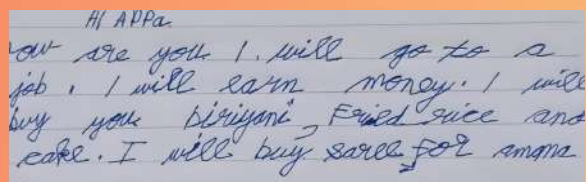 HI APPa
ow are you I. will go to a
job. I will earn money. I will
buy you biriyani, Fried rice and
cake. I will buy saree for amma